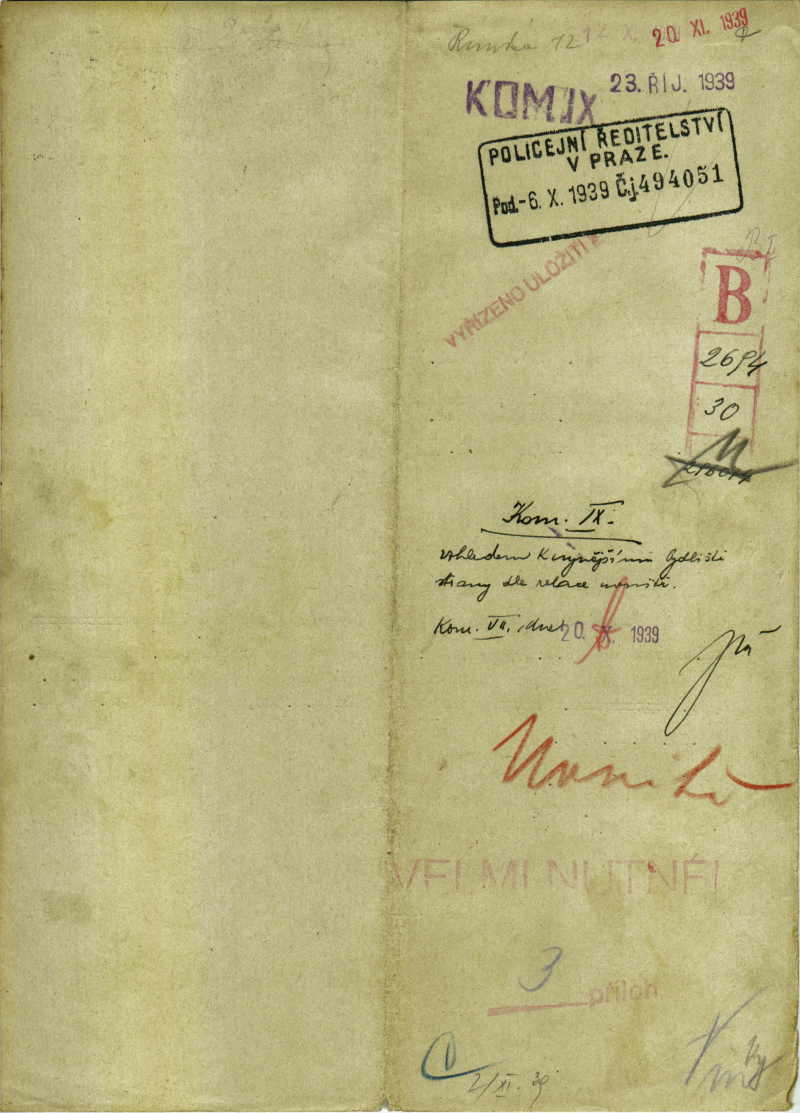 12
20. XI. 1939
KOM. IX
23. ŘÍJ. 1939
POLICEJNÍ ŘEDITELSTVÍ
V PRAZE.
Pod. -6. X. 1939 Čj. 494051
VYŘÍZENO ULOŽITI
B
2694
30
Kom. IX.
vzhledem k nynějšímu bydlišti
strany dle relace
Kom. VII. dne 20. X. 1939
VELMI NUTNÉ!
3 příloh
2/XI. 39